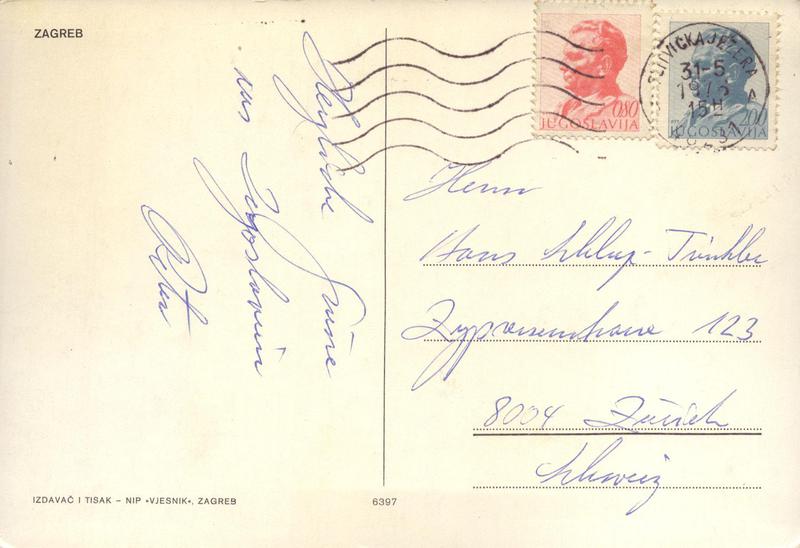 ZAGREB
Herzliche Grüsse
aus Jugoslavien
Peter
0.80
JUGOSLAVIJA
2.00
JUGOSLAVIJA
PLITVIČKA JEZERA
31-5
15H
Herrn
Hans
Zypressenstrasse 123
8004 Zürich
Schweiz
IZDAVAČ I TISAK – NIP »VJESNIK«, ZAGREB
6397